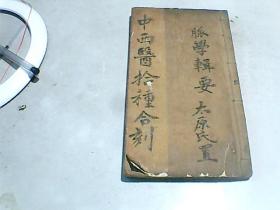 脈學輯要
太原氏置
中西醫拾種合刻